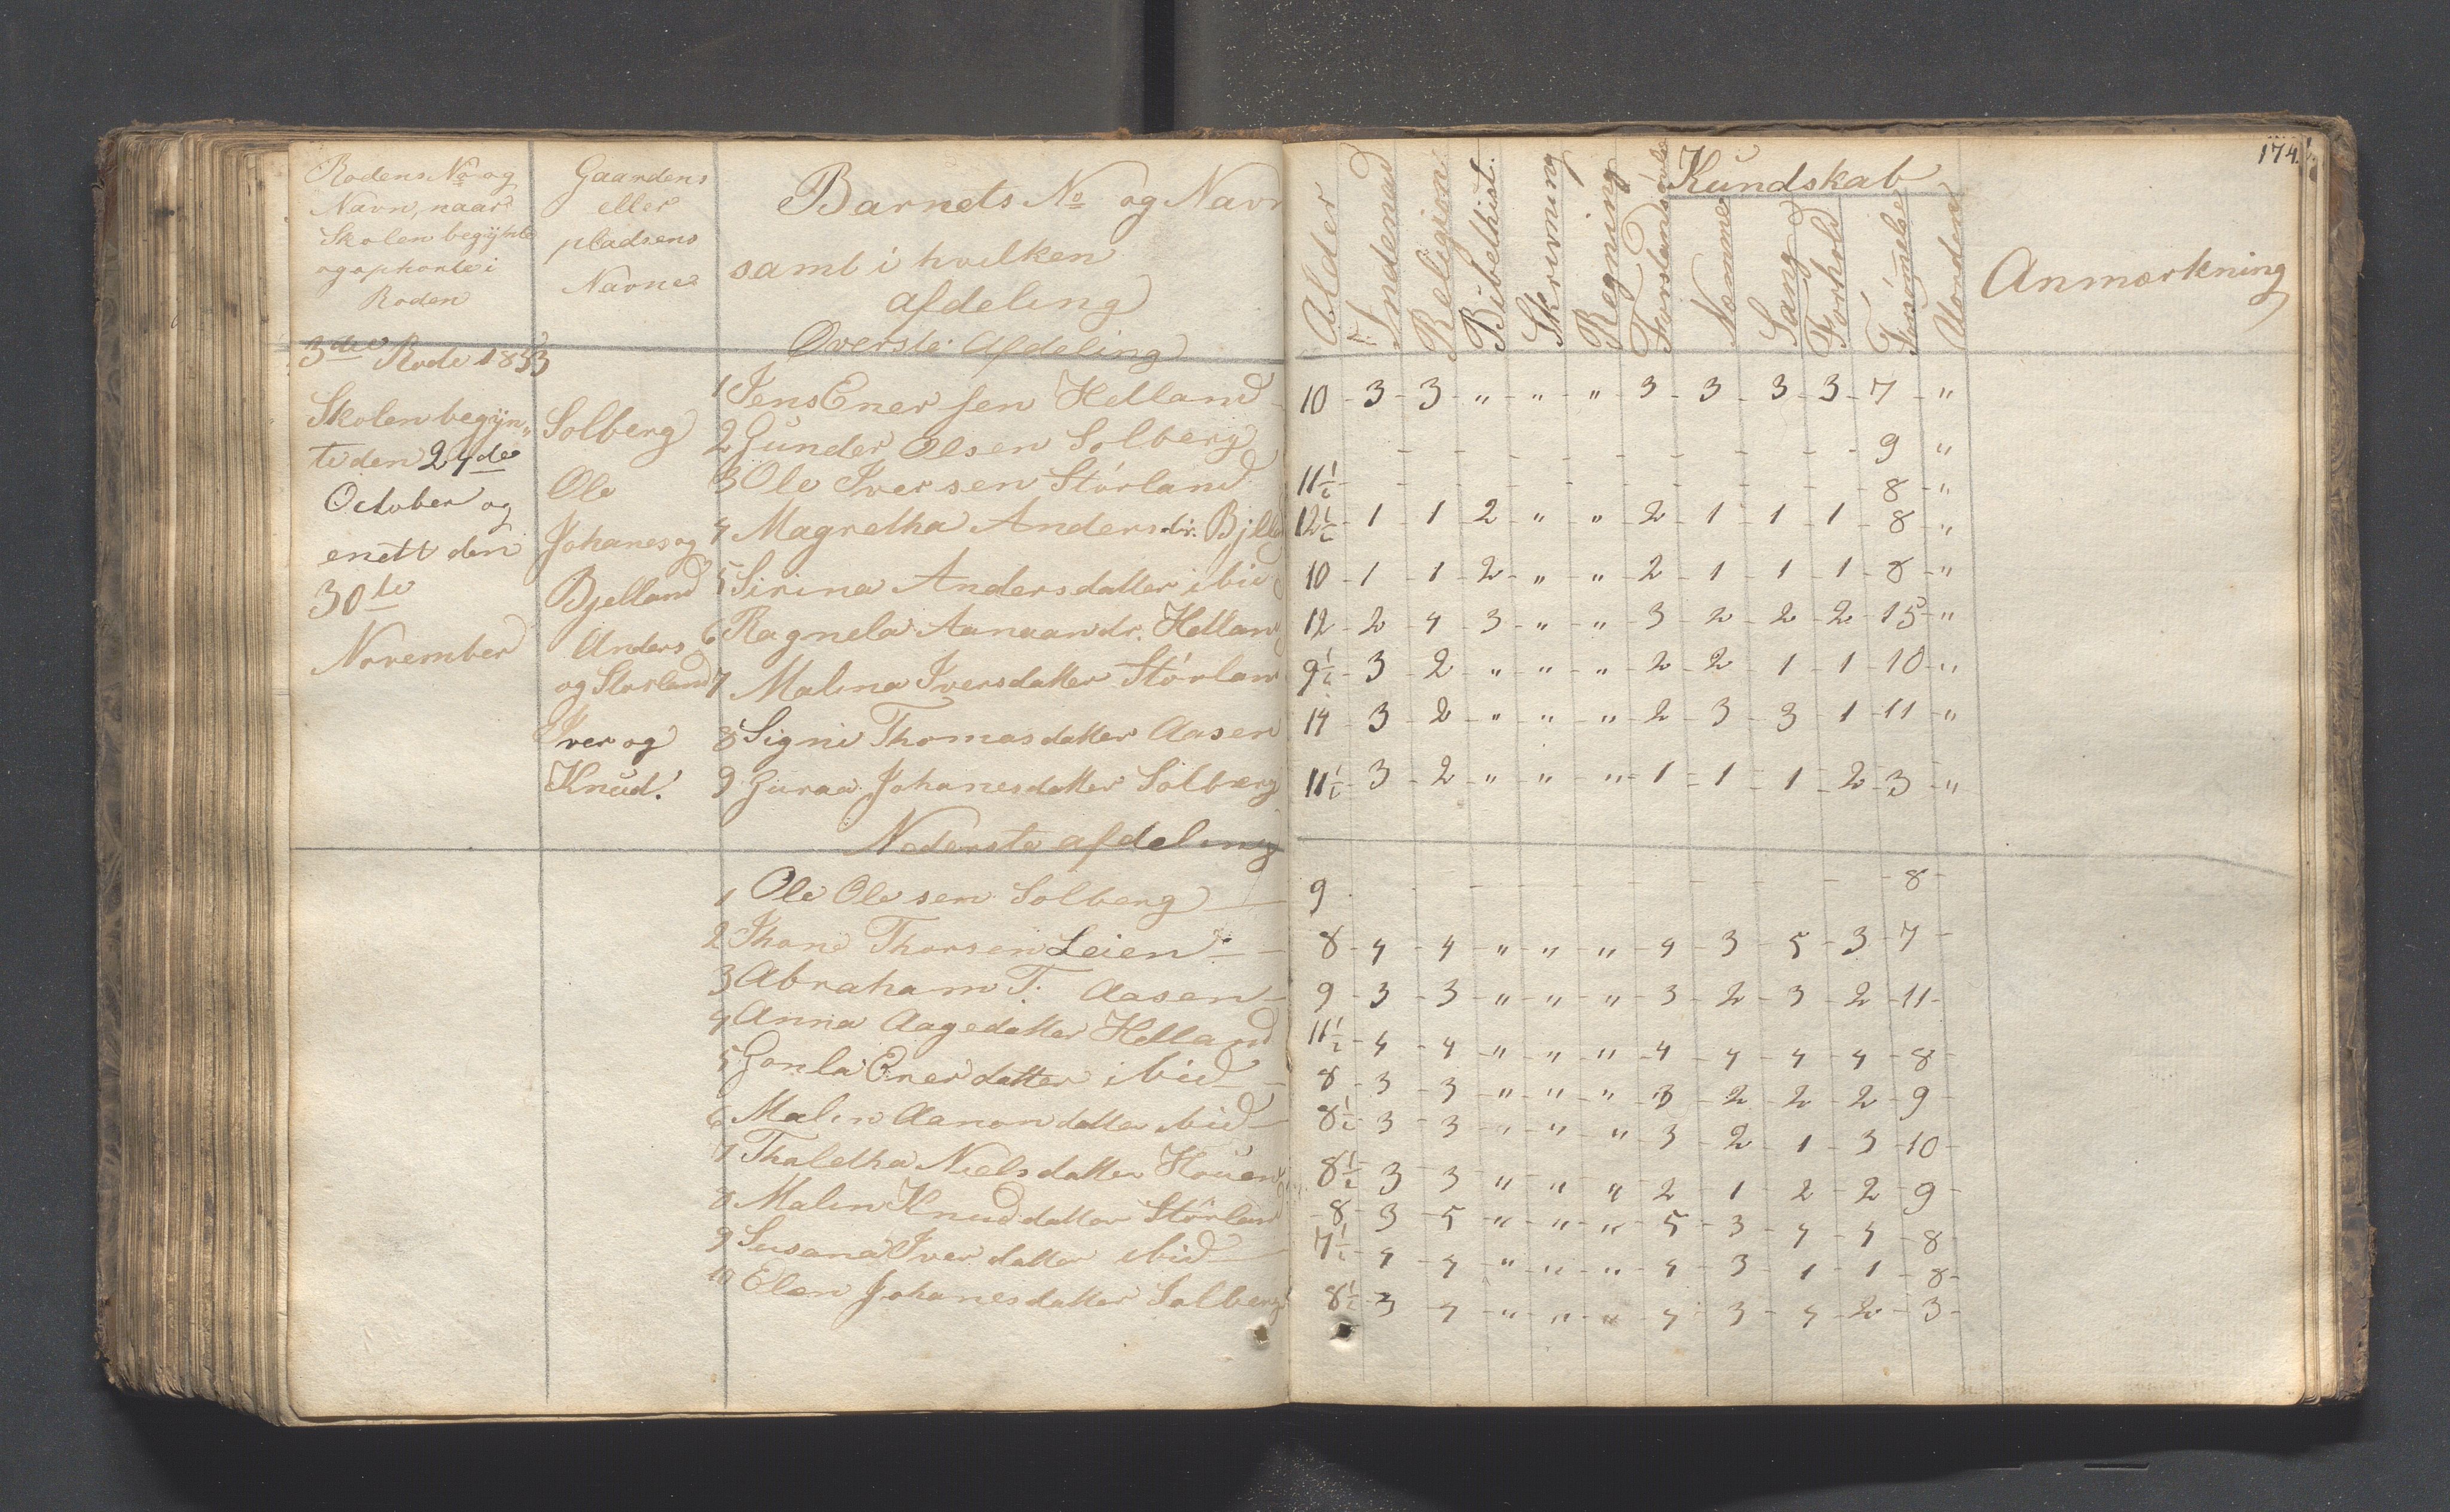 Rodens No og
Navn, naar
Skolen begÿnte
og ophorte i
Roden
Gaardens
eller
pladsens
Navne
Barnets No og Navn
samt i hvilken
afdeling
Överste Afdeling
3die Rode 1853
Skolen begÿn„
te den 24de
October og
enett den
30te
November
Solberg
Ole
Johanes og
Bjelland
Anders
og Storland
Iver og
Knud.
1 Jens Enersen Helland
2 Gunder Olsen Solberg
3 Ole Iversen Störland
4 Magretha Andersdr. Bjell
5 Sirina Andersdatter ibid
6 Ragnela Aanaandr. Helland
7 Malina Iversdatter Störlan
8 Signi Thomasdatter Aasen
9 Guraa Johanesdatter Solberg
Nederste afdeling
1 Ole Olesen Solberg
2 Thone Thorsen Leien
3 Abraham T. Aasen
4 Anna Aagedatter Helland
5 Gonla Enerdatter ibid
6 Malin Aanondatter ibid
7 Thaletha Nielsdatter Houen
8 Malin Knuddatter Störlan
9 Susana Iverdatter ibid
10 Elen Johanesdatter Solberg
174
Kundskab
Alder
Indenad
Religion
Bibelhist.
Skrivning
Regning
Forstandsövelse
Nemme
Sang
Forhold
Forsömelse
Uorden
Anmærkning
10 - 3 - 3 - " - " - " 3 - 3 - 3 - 3 - 7 - "
- - - - - - - - - 9 "
11½ - - - - - - - - - - 8 - "
12½ - 1 - 1 - 2 - " - " - 2 - 1 - 1 - 1 - 8 - "
10 - 1 - 1 - 2 - " - " - 2 - 1 - 1 - 1 - 8 - "
12 - 2 - 4 - 3 - " - " - 3 - 2 - 2 - 2 - 15 - "
9½ - 3 - 2 - " - " - " - 2 - 2 - 1 - 1 - 10 - "
14 - 3 - 2 - " - " - " - 2 - 3 - 3 - 1 - 11 - "
11½ - 3 - 2 - " - " - " - 1 - 1 - 1 - 2 - 3 - "
9 - - - - - - - - - 8 -
8 - 4 - 4 - " - " - " - 4 - 3 - 5 - 3 - 7 -
9 - 3 - 3 - " - " - " - 3 - 2 - 3 - 2 - 11 -
11½ - 4 - 4 - " - " - " - 4 - 4 - 4 - 4 - 8 -
8 - 3 - 3 - " - " - " - 3 - 2 - 2 - 2 - 9 -
8½ - 3 - 3 - " - " - " - 3 - 2 - 1 - 3 - 10 -
8½ - 3 - 3 - " - " - " - 2 - 1 - 2 - 2 - 9 -
8 - 3 - 5 - " - " - " - 5 - 3 - 4 - 4 - 8 -
7½ - 4 - 4 - " - " - " - 4 - 3 - 1 - 1 - 8 -
8½ - 3 - 4 - " - " - " - 4 - 3 - 4 - 2 - 3 -